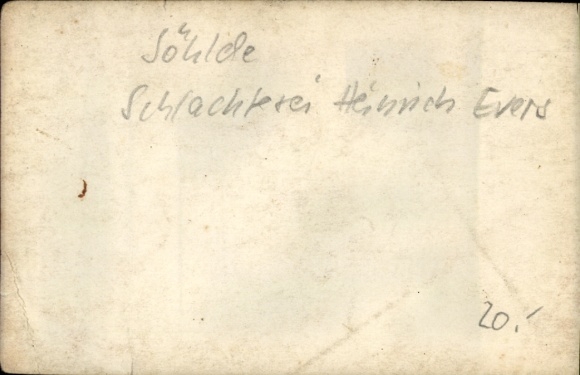 Söhlde
Schlachterei Heinrich Evers
20.-